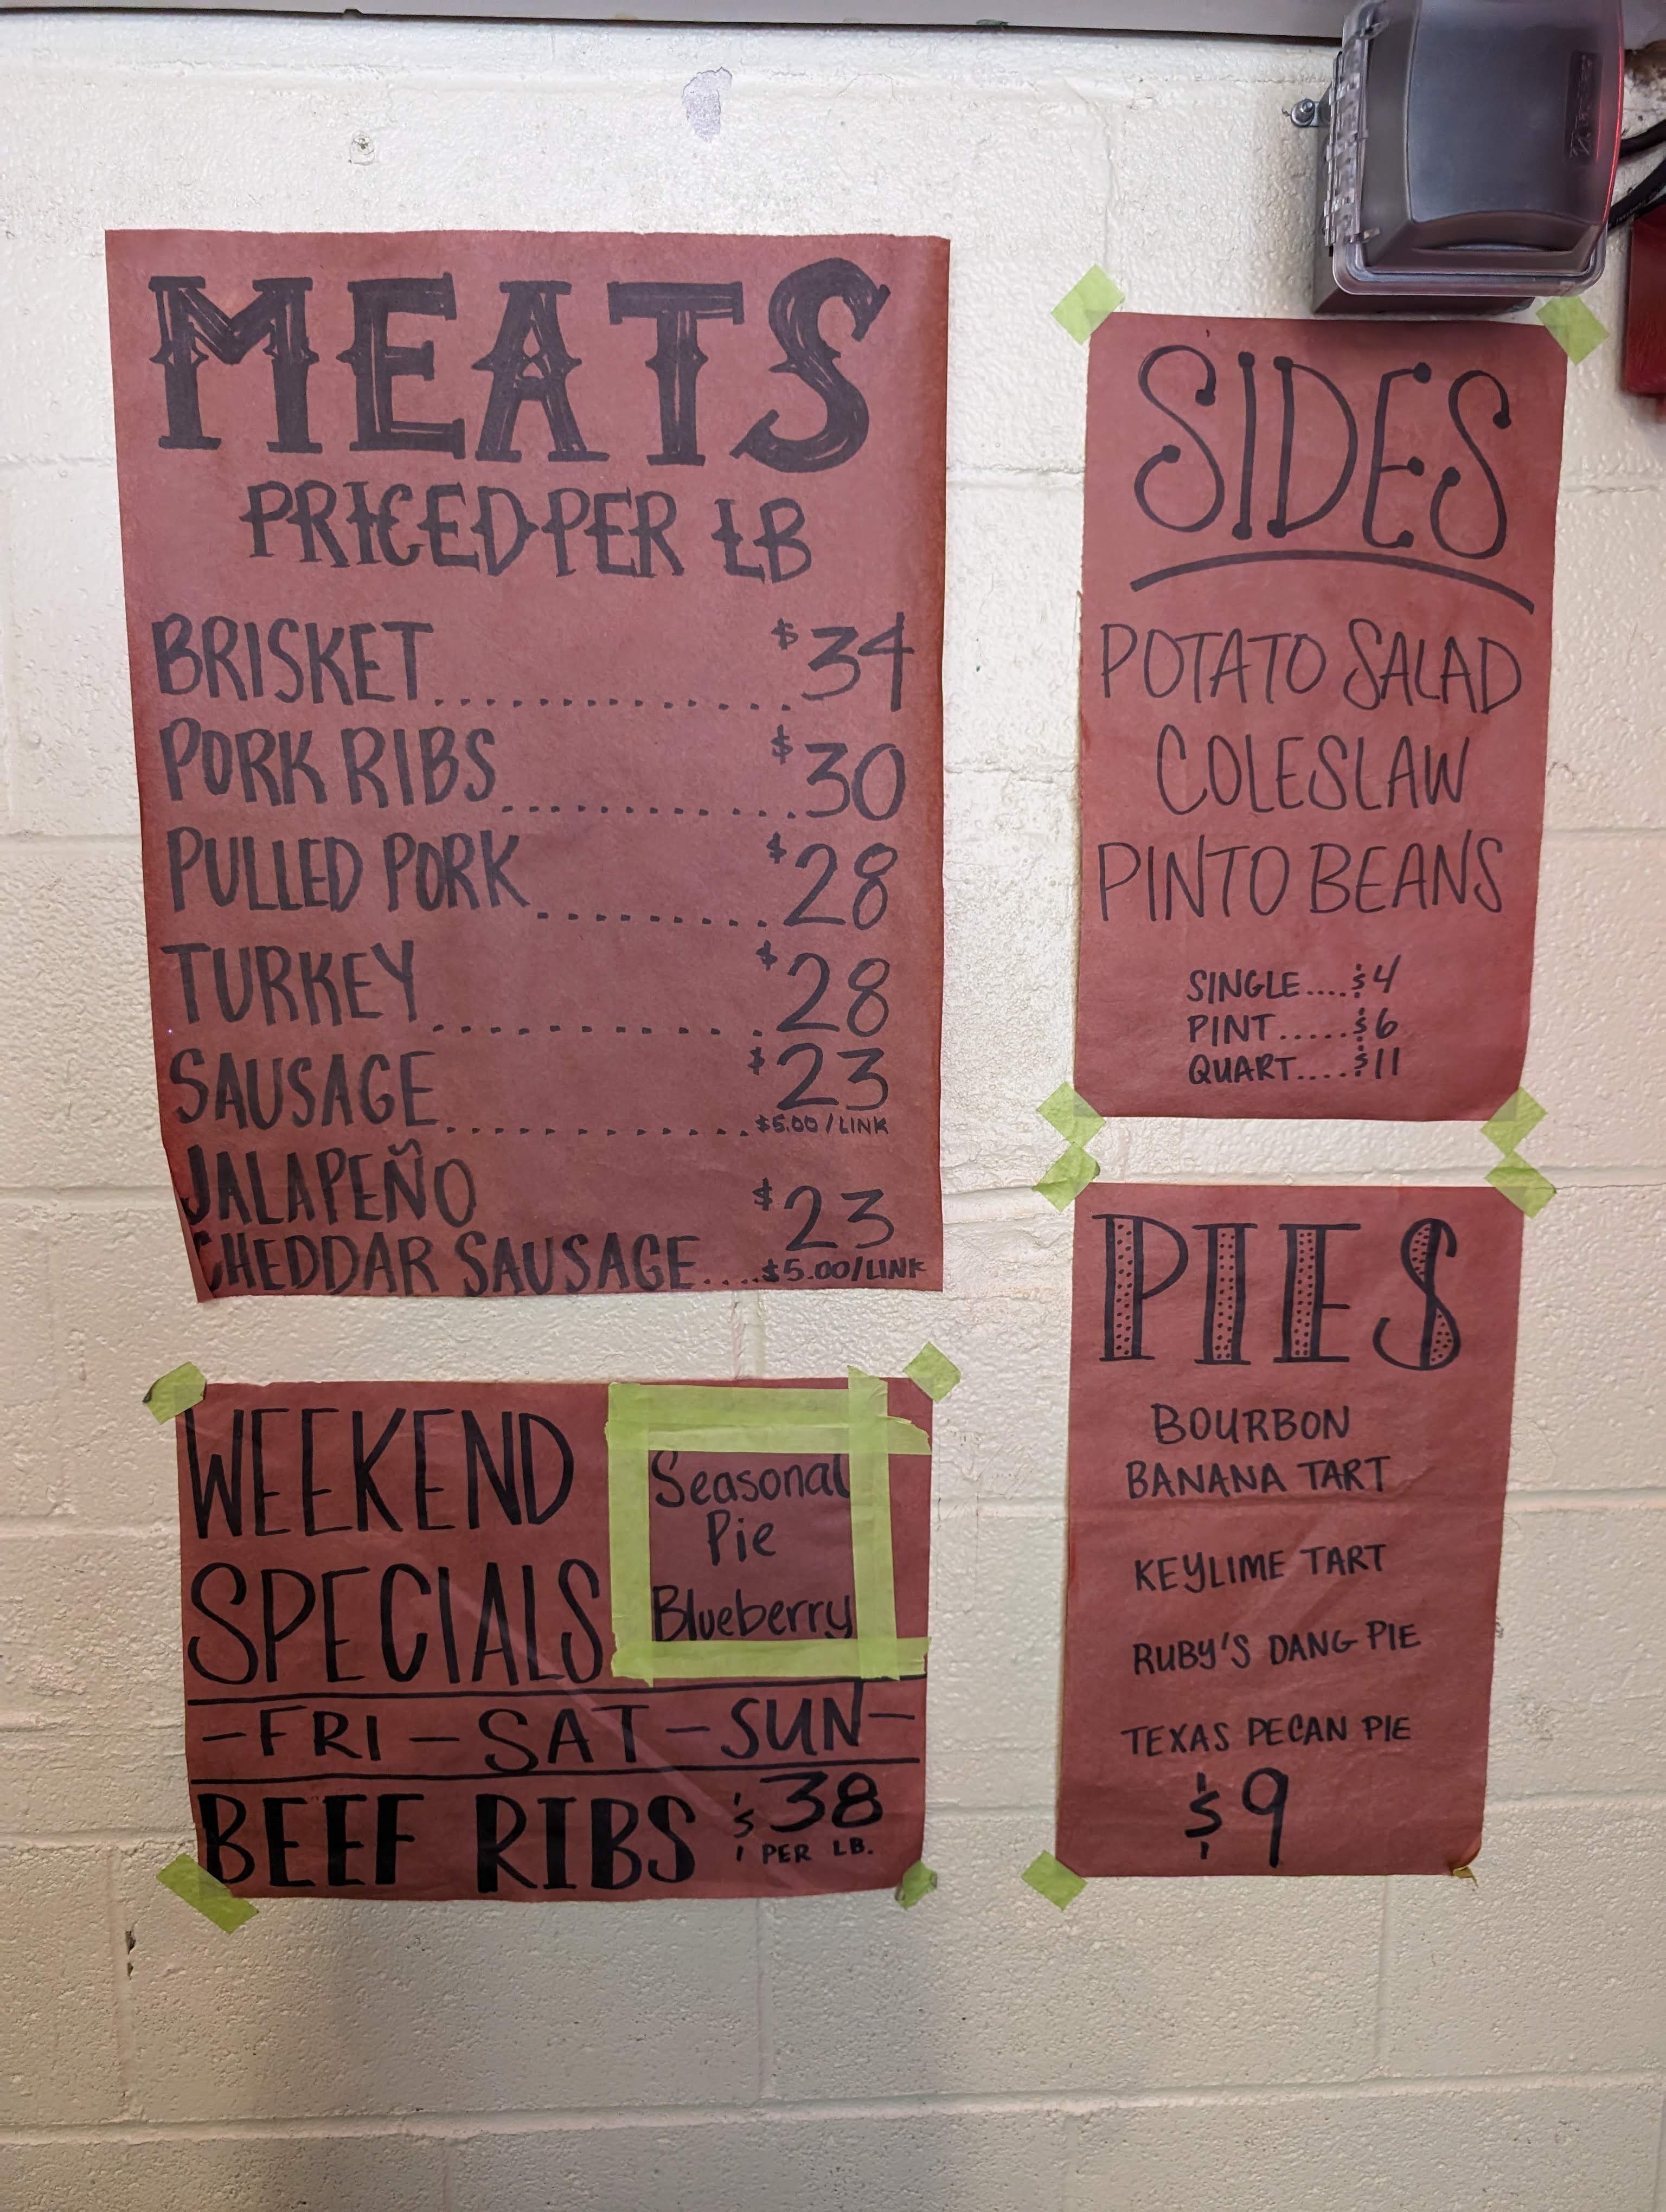 MEATS
PRICED PER LB
BRISKET.............$34
PORK RIBS............$30
PULLED PORK.........$28
TURKEY.............$28
SAUSAGE.............$23
$5.00/LINK
JALAPEÑO
CHEDDAR SAUSAGE....$23
$5.00/LINK
SIDES
POTATO SALAD
COLESLAW
PINTO BEANS
SINGLE....$4
PINT.....$6
QUART....$11
WEEKEND
SPECIALS
Seasonal
Pie
Blueberry
-FRI-SAT-SUN-
BEEF RIBS $38
PER LB.
PIES
BOURBON
BANANA TART
KEYLIME TART
RUBY'S DANG PIE
TEXAS PECAN PIE
$9